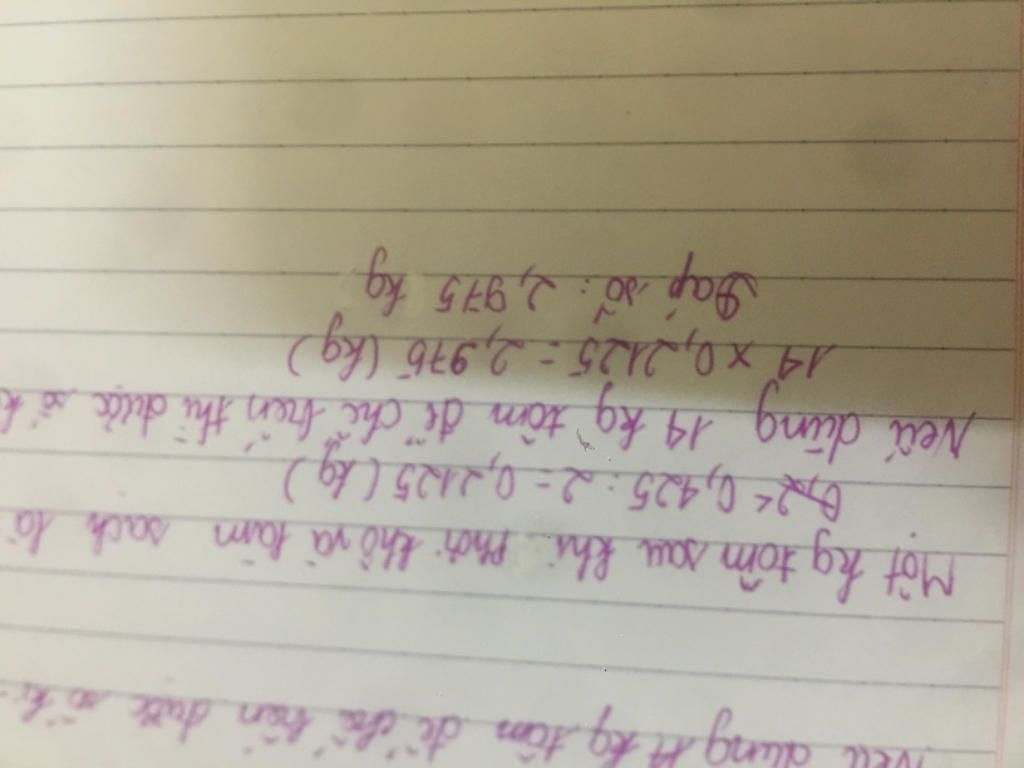 Nếu dùng 14 kg tôm để chế biến được số ki-
Một kg tôm sau khi phơi khô và làm sạch là
0,425 : 2 = 0,2125 (kg)
Nếu dùng 14 kg tôm để chế biến thì được số k
14 x 0,2125 = 2,975 (kg)
Đáp số: 2,975 kg